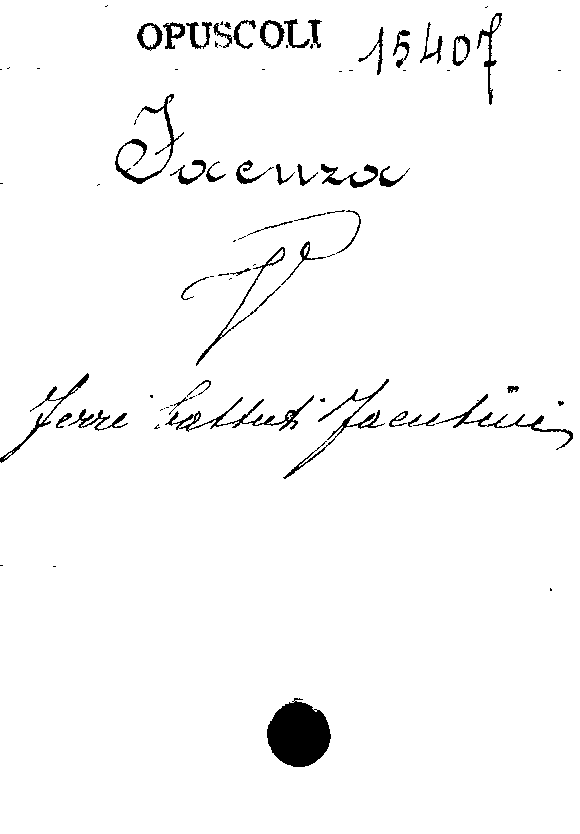 OPUSCOLI 15407
Faenza
V
Ferri battuti faentini